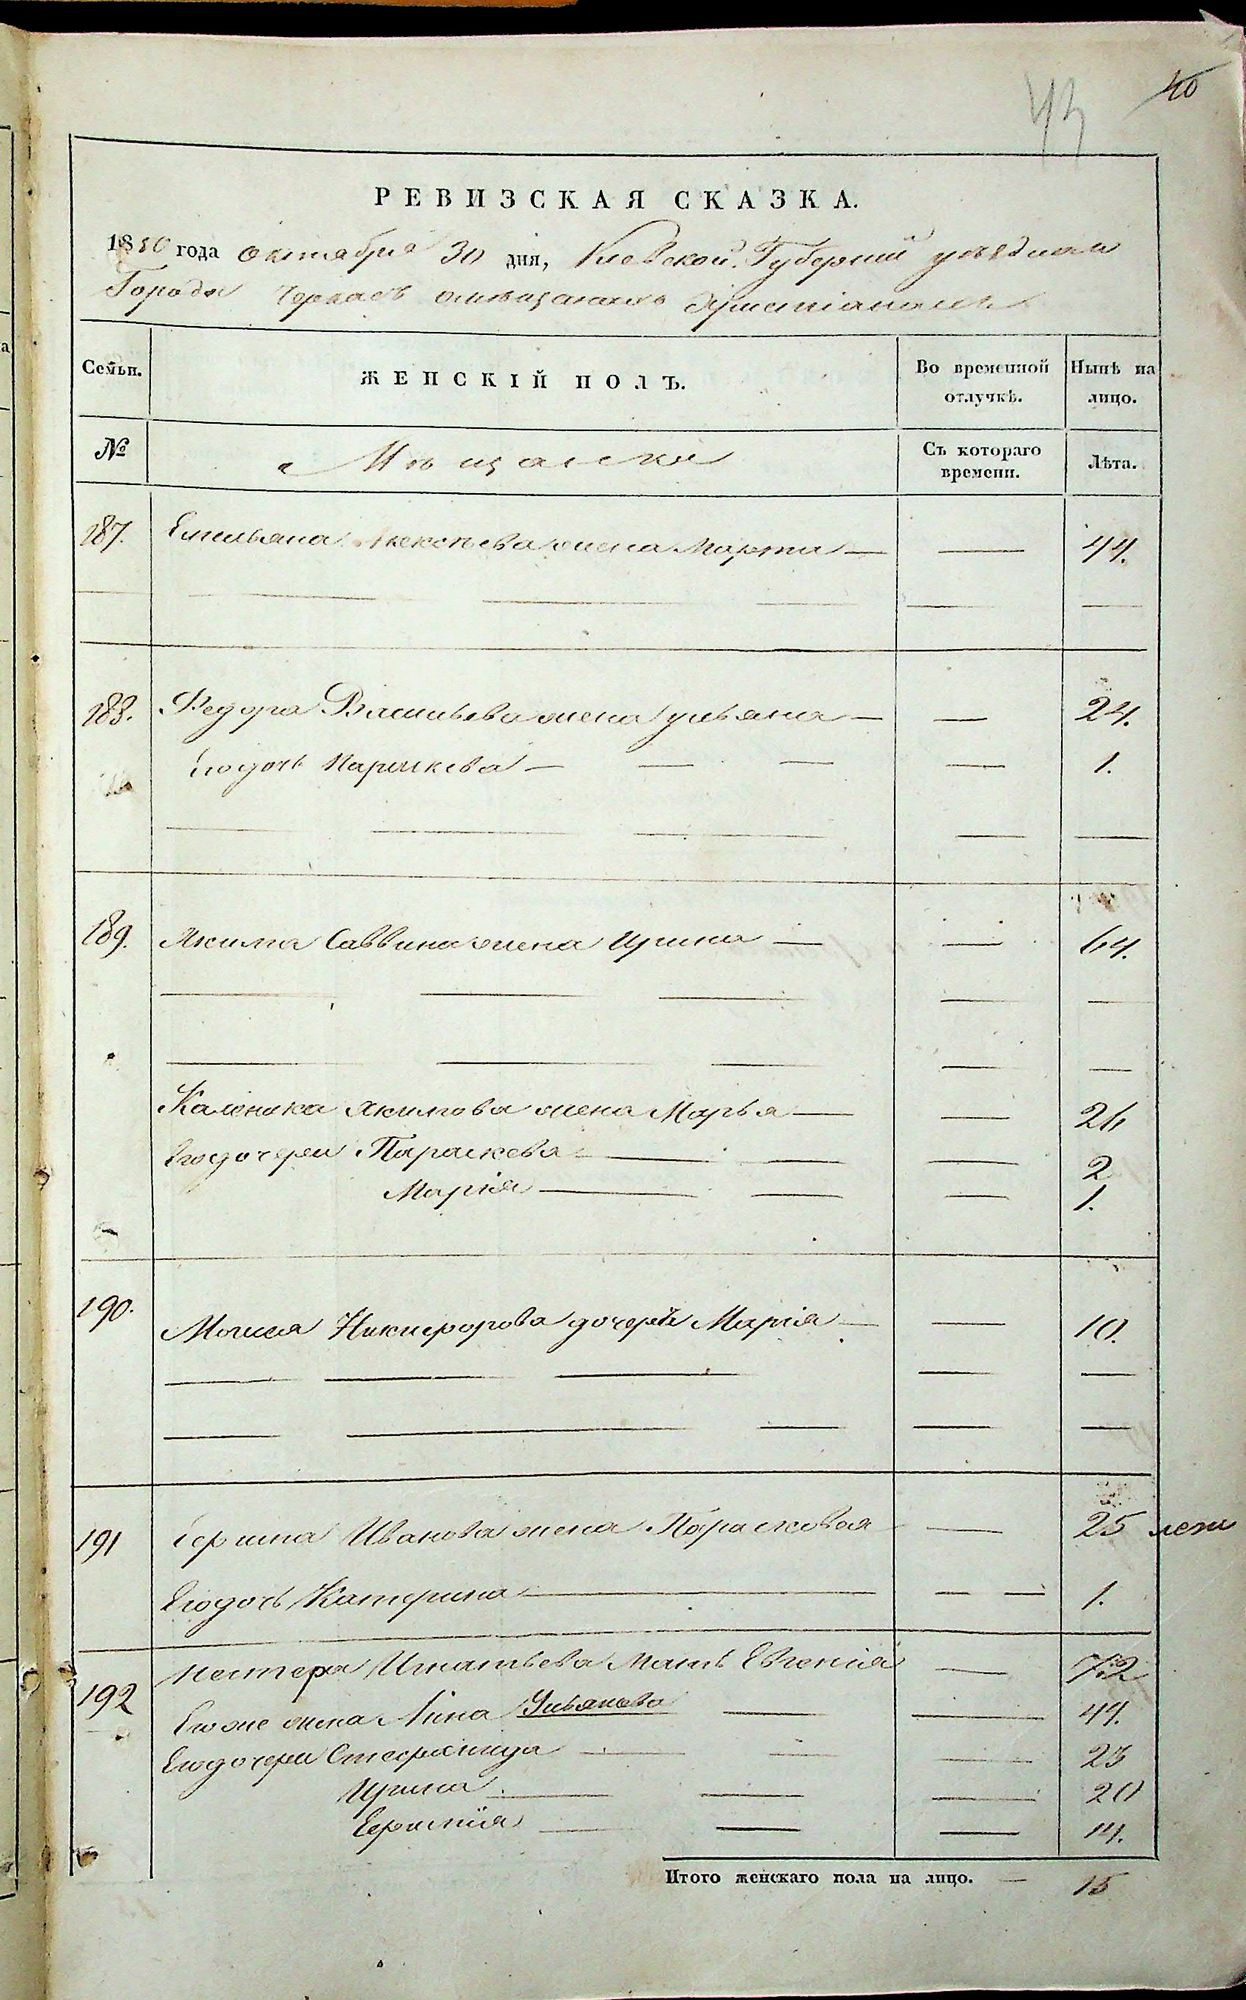 40
43
РЕВИЗСКАЯ СКАЗКА.
1850 года октября 30 дня, Киевской Губернии уездном
Городе Черкас омещанахъ Христіанахъ
Семьи. ЖЕНСКІЙ ПОЛЪ. Во временной отлучкѣ. Нынѣ на лицо.
№ Мѣщанска Съ котораго времени. Лѣта.
187. Емельяна Алексѣева жена Марта — — 44.
188. Федора Васильева жена Ульяна — — 24.
Егодочь Параскева — — 1.
189. Якима Саввина жена Ирина — — 64.
Каленика Якимова жена Марья — — 26
Егодочери Параскева — — 2
Марія — — 1.
190. Моисея Никифорова дочерѣ Марія — — 10.
191 Иванова жена Парасковея — 25 лет
Егодочь Катерина — — 1.
192 Нестера Игнатьева Мать Евгенія — 72
Егоже жена Анна Ульянова — — 44.
Егодочери Стефанида — — 23
Ирина — — 20
Ефимія — — 14.
Итого женскаго пола на лицо. — 15